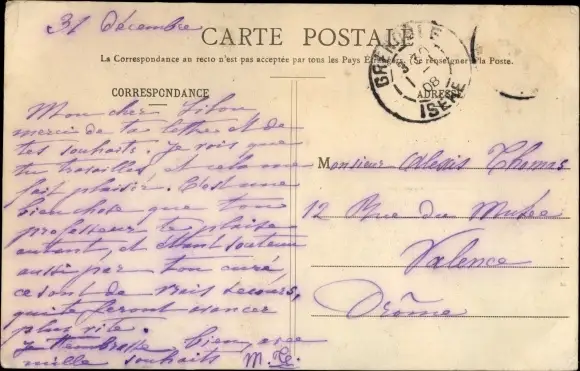 31 décembre
CARTE POSTALE
La Correspondance au recto n'est pas acceptée par tous les Pays Étrangers. Se renseigner à la Poste.
GRENOBLE
30
08
ISERE
CORRESPONDANCE
ADRESSE
Mon cher
merci de ta lettre et de
tes souhaits. Je vois que
tu travailles et cela me
fait plaisir. C'est une
bien chose que ton
professeur te plaise
autant, et étant soutenu
aussi par ton curé,
ce sont de vrais secours,
qui te feront avancer
plus vite.
Je t'embrasse bien, avec
mille souhaits M.
Monsieur Alexis Thomas
12 Rue du Musée
Valence
Drôme